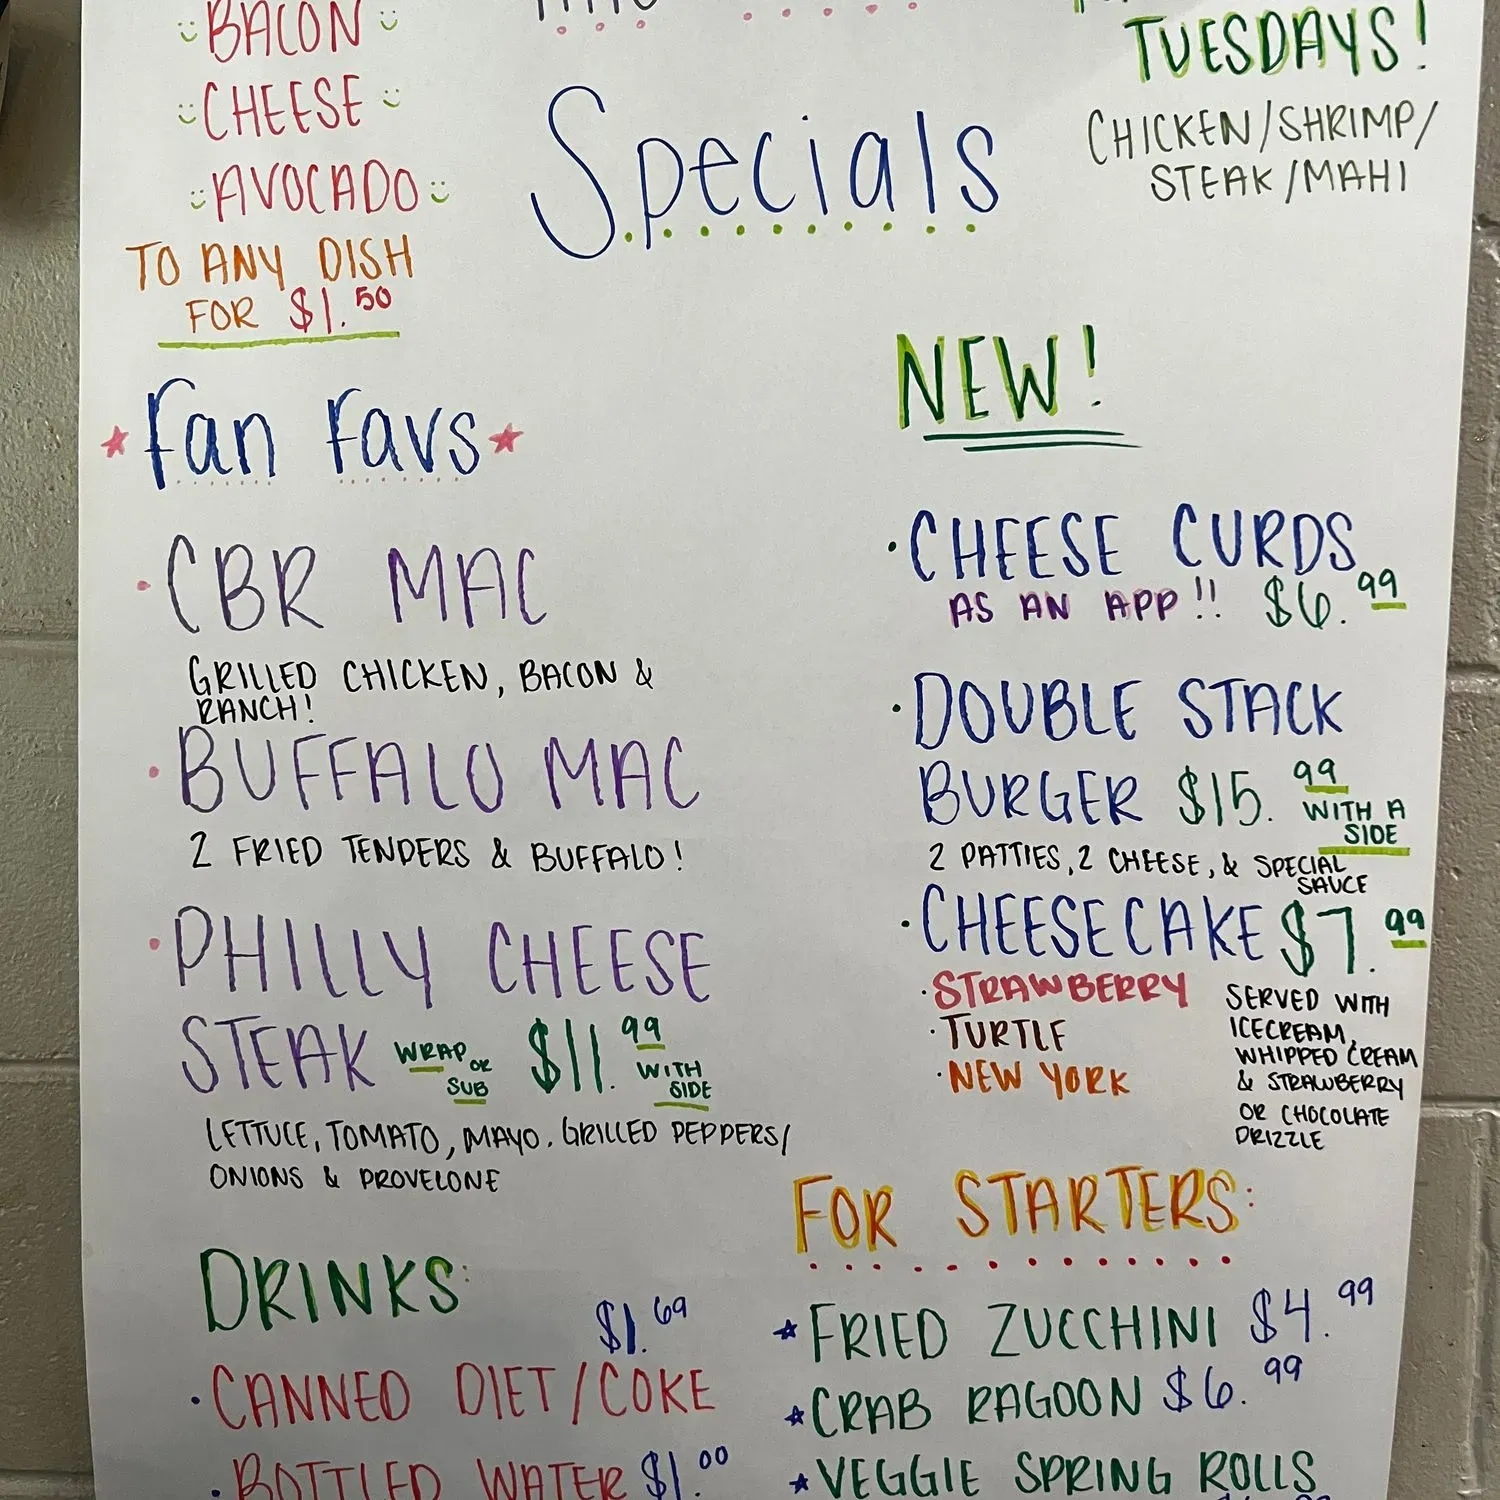 BACON
CHEESE
AVOCADO
TO ANY DISH
FOR $1.50
Specials
TUESDAYS!
CHICKEN/SHRIMP/
STEAK/MAHI
Fan Favs
· CBR MAC
GRILLED CHICKEN, BACON &
RANCH!
· BUFFALO MAC
2 FRIED TENDERS & BUFFALO!
· PHILLY CHEESE
STEAK WRAP OR SUB $11.99 WITH SIDE
LETTUCE, TOMATO, MAYO. GRILLED PEPPERS/
ONIONS & PROVELONE
DRINKS:
$1.69
· CANNED DIET/COKE
· BOTTLED WATER $1.00
NEW!
· CHEESE CURDS
AS AN APP!! $6.99
· DOUBLE STACK
BURGER $15.99 WITH A SIDE
2 PATTIES, 2 CHEESE, & SPECIAL
SAUCE
· CHEESECAKE $7.99
· STRAWBERRY
· TURTLE
· NEW YORK
SERVED WITH
ICECREAM,
WHIPPED CREAM
& STRAWBERRY
OR CHOCOLATE
DRIZZLE
FOR STARTERS:
FRIED ZUCCHINI $4.99
CRAB RAGOON $6.99
VEGGIE SPRING ROLLS